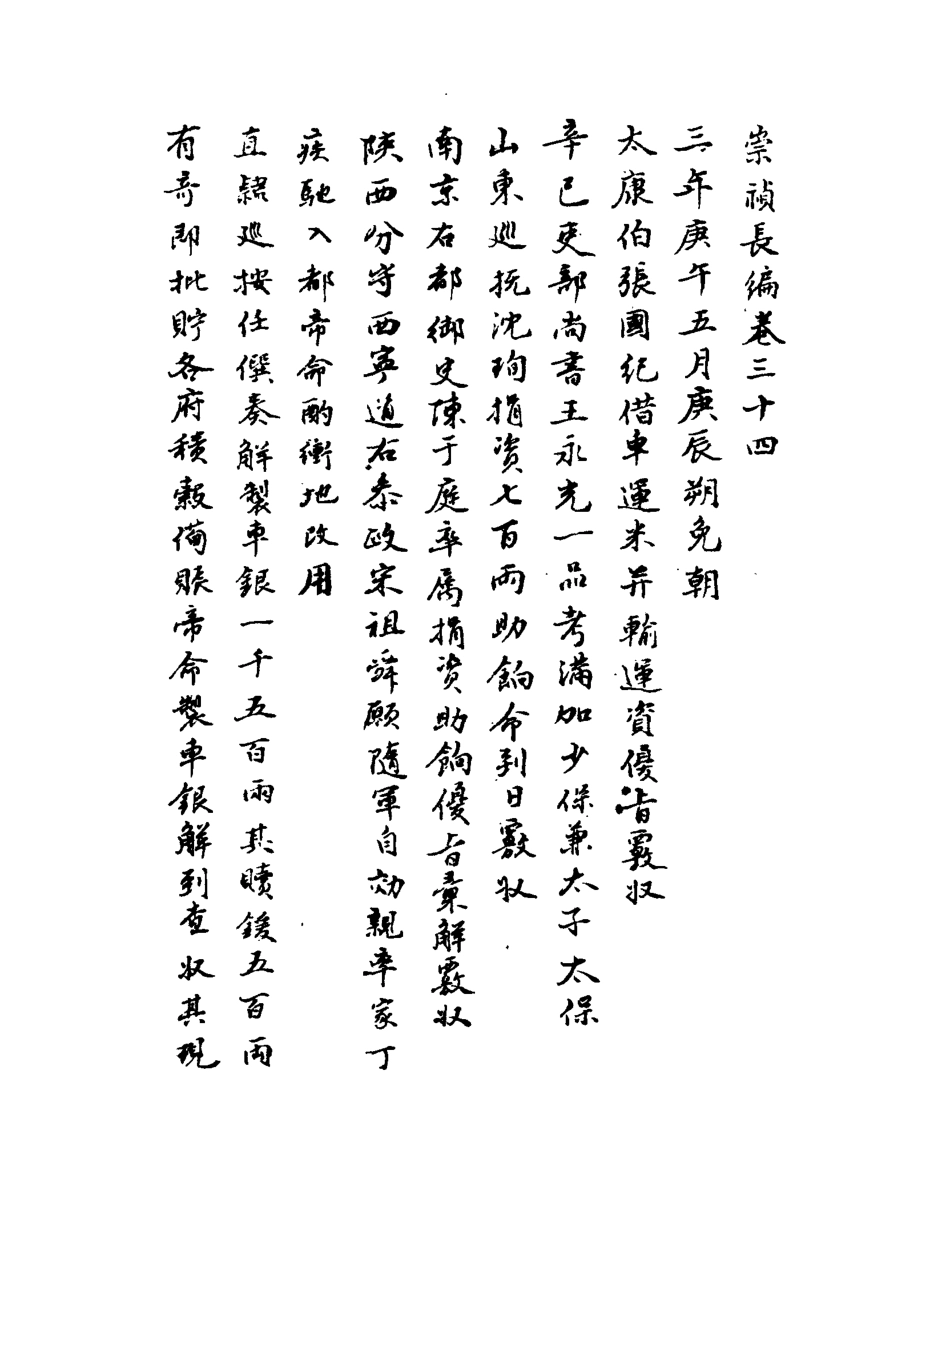 崇禎長編卷三十四
三年庚午五月庚辰朔免朝
太康伯張國紀借車運米并輸運資優旨覈収
辛巳吏部尚書王永光一品考滿加少保兼太子太保
山東巡抚沈珣捐资七百兩助餉命到日覈收
南京右都御史陳于庭率属捐资助餉優旨彙解覈收
陝西分守西寧道右叅政宋祖舜願隨軍自効親率家丁
疾馳入都帝命酌衝地改用
直隷巡按任僎奏解製車銀一千五百兩其贖鍰五百两
有奇即批貯各府積穀備賑帝命製車銀解到查收其現